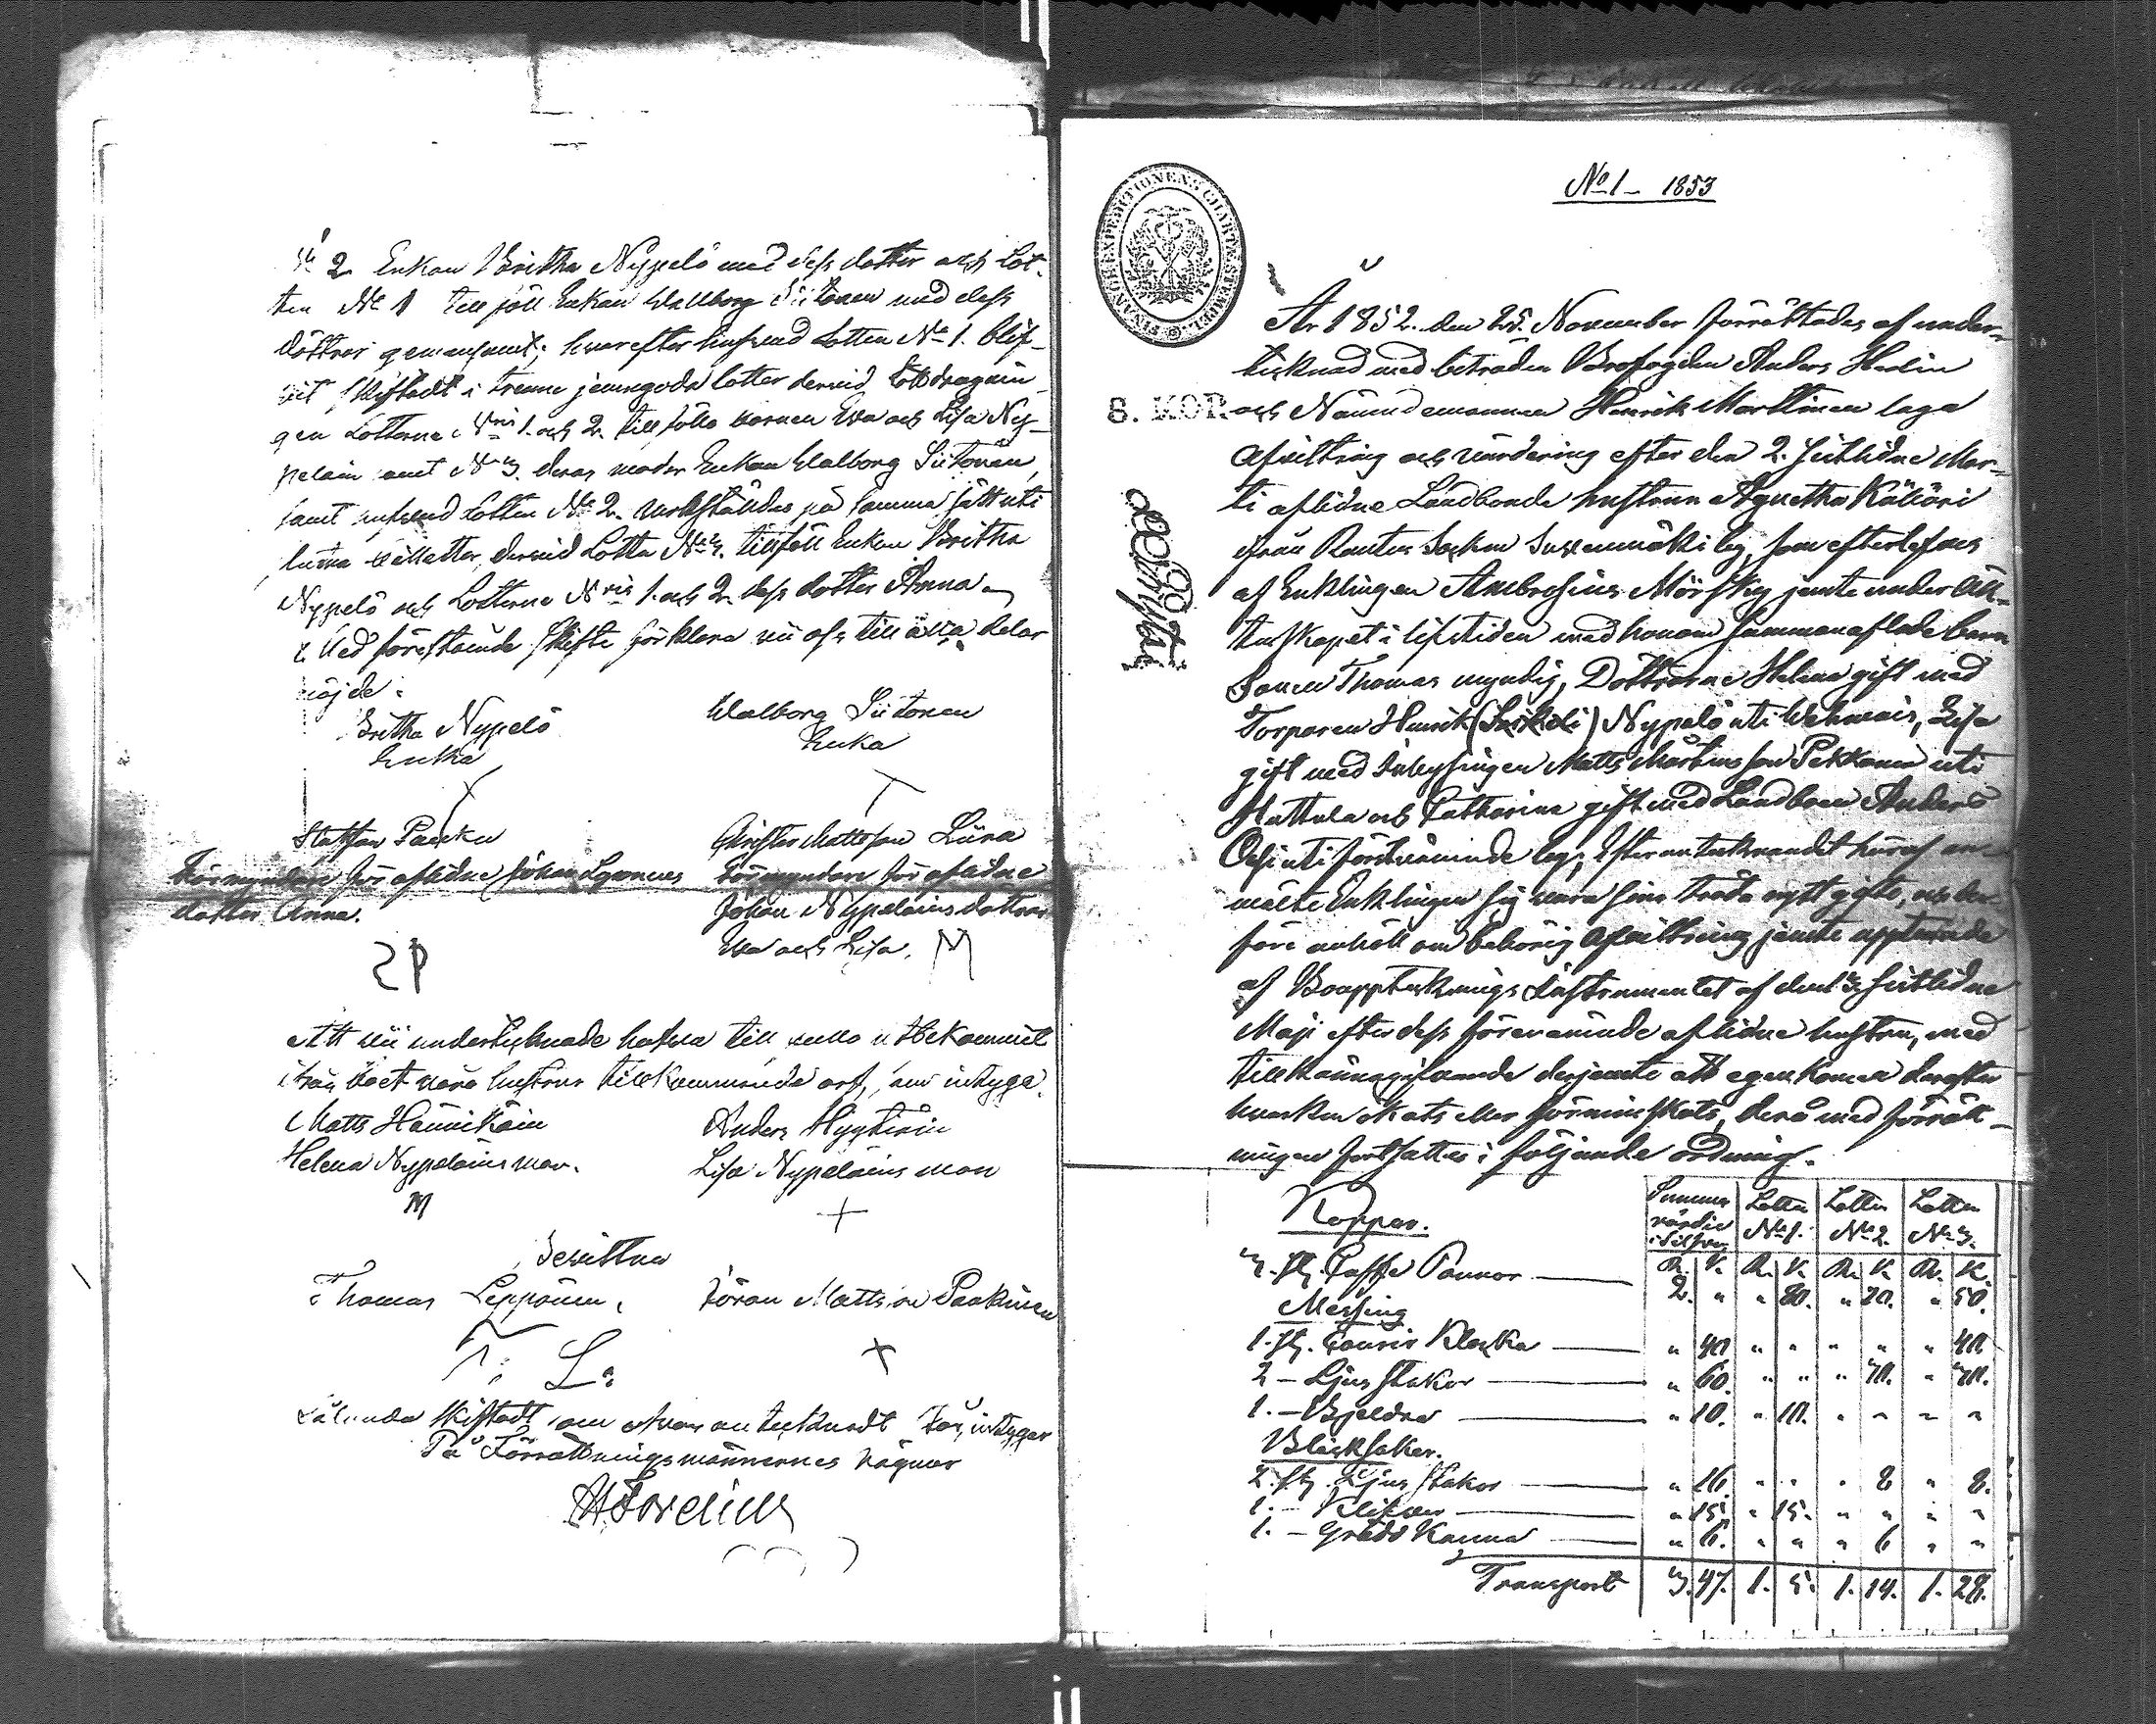 2 Enkan Britha Nypelö med dess dotter och Lot-
ten No 1 till föll Enkan Wallborg Siitonen med dess
döttrar gemensamt; hvarefter Lotten No 1. blif-
vit skiftadt i trenne jemngoda lotter dervid lottdragnin
gen Lotterne Nris 1. och 2. tillföllo barnen Ewa och Lisa Ny-
peläin samt No 3. deras moder Enkan Walborg Siitonen,
samt Lotten No 2. verkställdes på samma sätt uti
lotter, dervid Lotten No 3. tillföll Enkan Britha
Nypelö och Lotterne Nris 1. och 2. dess dotter Anna
Med förestående skifte förklara vii oss till alla delar
nöjde.
Britha Nypelö
Enka
Walborg Siitonen
Enka
Staffan
Förmyndare för aflidne Johan
dotter Anna.
SP
Christer Mattsson Liira
Förmyndare för aflidne
Johan Nypeläins döttrar
Ewa och Lisa. M
Att vii undertecknade hafva till nöllo utbekommit
från boet våra hustrur tillkommande arf, som intyga.
Matts Hännikäin
Helena Nypeläins man.
M
Anders Hyytiäin
Lisa Nypeläins man
+
Bevittna
Thomas Leppänen,
T: L:
Jöran Mattsson Paakinen
Sålunda skiftadt som ofvan antecknadt står, intygar
På Förrättningsmännernes vägnar
No 1 - 1853
FINANCE EXPEDITIONENS CHARTÆ STEMPEL
8. KOP.
År 1852. den 25. November förrättades af under-
tecknad med beträden Brofogden Anders Hedin
och Nämndemannen Henrik Marttinen laga
afvittring och värdering efter den 2. sistlidne Mar-
ti aflidne Landbonde hustrun Agnetha Käköri
ifrån Rautus Sockn Suvenmäki by, som efterlefves
af Enklingen Ambrosius Mörsky jemte under äk-
tenskapet i lifstiden med honom sammanaflade barn
Sonen Thomas myndig, Döttrarne Helena gift med
Torparen Henrik () Nypelö uti Wehmais, Lisa
gift med Inhysingen Matts Mårtensson Pekkanen uti
Hattula och Catharina gift med Landboen Anders
Orsi uti förstnämnde by; Efter antecknandet häraf an-
mälte Enklingen sig vara sinnad träda nytt gifte, och der-
före anhöll om behörig afvittring jemte uppteende
af Bouppteknings Instrumentet af den 3. sistlidne
Maji efter dess förenämnde aflidne hustru, med
tillkännagifvande derjemte att egendomen derefter
hvarken ökats eller förminskats, derå med förrätt-
ningen fortsattes i följande ordning.
Koppar.
Summa värdie i Silfver | Lotten No 1. | Lotten No 2. | Lotten No 3.
R. K. R. K. R. K. R. K.
3. st. Caffe Pannor 2. " " 80. " 70. " 50.
Messing
1. st. Klocka " 40 " " " " " 40.
2 - Ljus stakar " 60. " " " 30. " 30.
1. - Bjeldra " 10. " 10. " " " "
Bläcksaker.
2. st. Ljus stakar " 16. " " " 8 " 8.
1. - " 15. " 15. " " " "
1. - Grädd Kanna " 6. " " " 6 " "
Transport 3. 47. 1. 5. 1. 14. 1. 28.